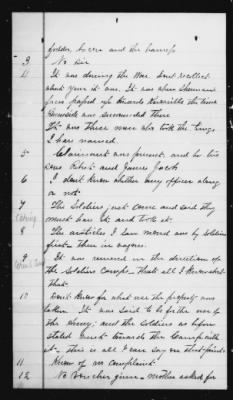 fodder, bacon and the harness
3 No Sir
4 It was during the War. dont recollect
what year it was. It was when Sherman's
forces passed up towards Knoxville the time
Burnside was surrounded there
It was three men who took the things
I have named.
5 Claimant was present, and his two
sons Robert and James Jacob
6 I dont know whether any officer along
or not.
7 The Soldiers just came and said they
must have it and took it.
8 The articles I saw moved one by soldiers
first, then in wagons.
9 It was removed in the direction of
the Soldiers Camps. that all I know about
that.
10 dont know for what use the property was
taken It was said to be for the use of
the Army; and the soldiers as before
stated went towards the Camps with
it. This is all I can say on that point.
11 Know of no complaint.
12 No voucher given. mother asked for